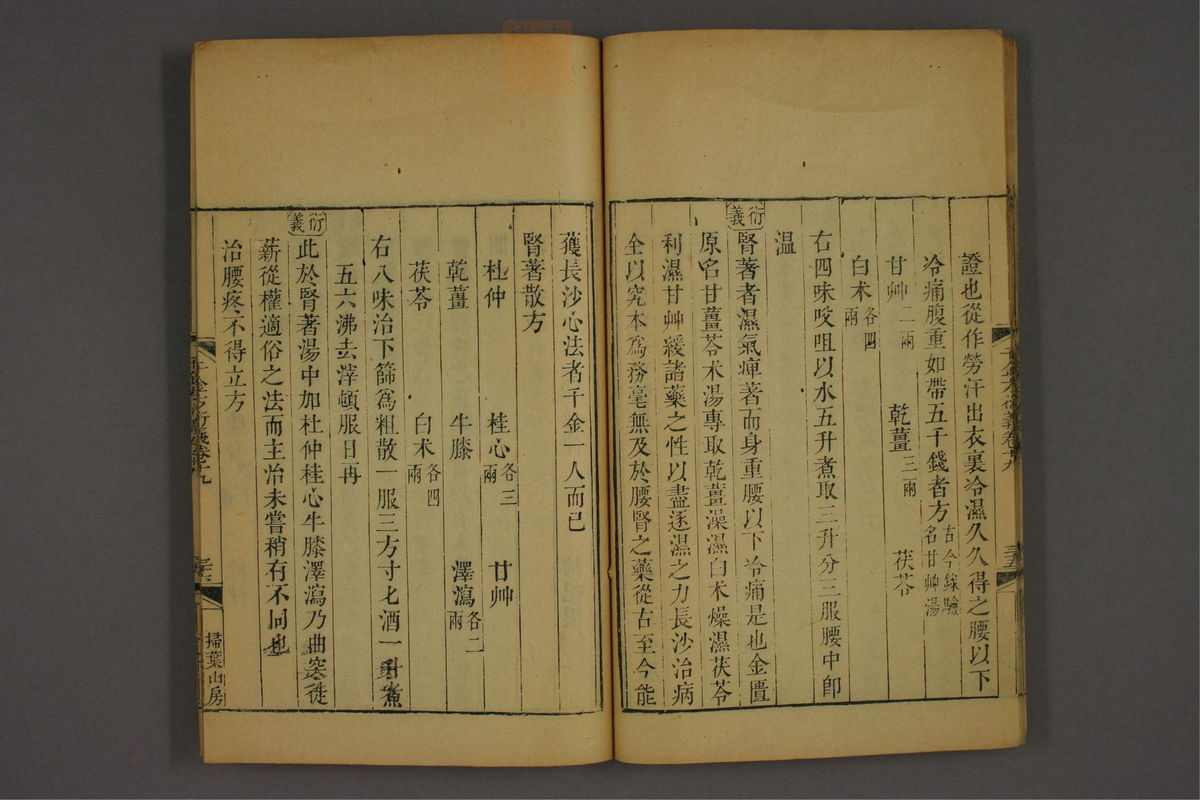 證也從作勞汗出衣裏冷濕久久得之腰以下
冷痛腹重如帶五千錢者方古今錄驗名甘艸湯
甘艸二兩 乾薑三兩 茯苓
白朮各四兩
右四味㕮咀以水五升煮取三升分三服腰中卽
温
衍義
腎著者濕氣痺著而身重腰以下冷痛是也金匱
原名甘薑苓朮湯專取乾薑澡濕白朮燥濕茯苓
利濕甘艸緩諸藥之性以盡逐濕之力長沙治病
全以究本為務毫無及於腰腎之藥從古至今能
獲長沙心法者千金一人而已
腎著散方
杜仲 桂心各三兩 甘艸
乾薑 牛膝 澤瀉各二兩
茯苓 白朮各四兩
右八味治下篩爲粗散一服三方寸匕酒一升煮
五六沸去滓頓服日再
衍義
此於腎著湯中加杜仲桂心牛膝澤瀉乃曲突徙
薪從權適俗之法而主治未嘗稍有不同也
治腰疼不得立方
千金方衍義卷十九
三十五
千金方衍義卷十九
三十六
掃葉山房